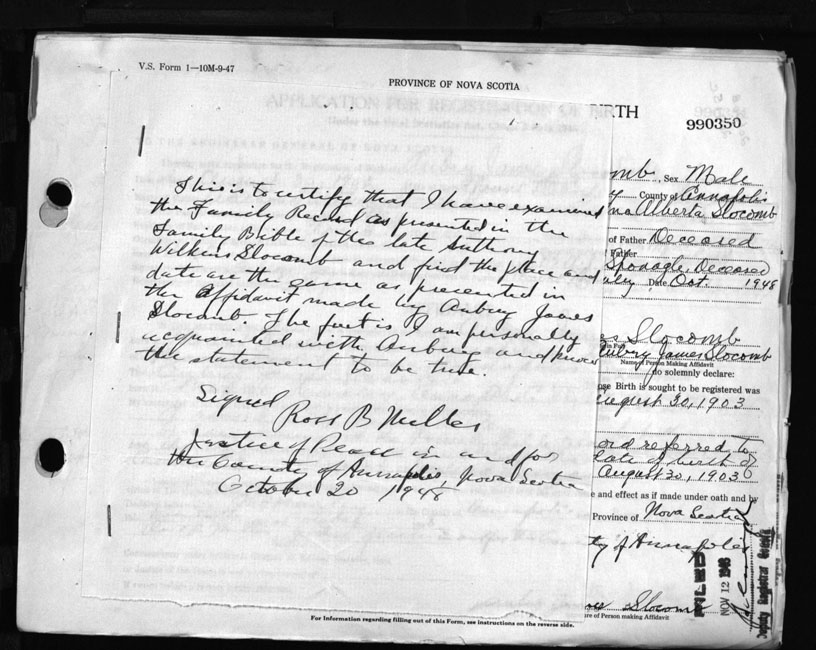 V.S. Form 1—10M-9-47
PROVINCE OF NOVA SCOTIA
APPLICATION FOR REGISTRATION OF BIRTH
990350
This is to certify that I have examined
the Family Record as presented in the
Family Bible of the late Anthony
Wilkins Slocomb and find the place and
date are the same as presented in
the Affidavit made by Aubry James
Slocomb. The fact is I am personally
acquainted with Aubury and know
the statement to be true.
Signed
Ross B Miller
Justice of Peace in and for
the County of Annapolis, Nova Scotia
October 20 1948
mb, Sex Male
County of Annapolis
Alberta Slocomb
of Father Deceased
Father
Sponagle, Deceased
Date Oct. 1948
es Slocomb
Aubry James Slocomb
Name of Person Making Affidavit
do solemnly declare:
ose Birth is sought to be registered was
August 30, 1903
ord referred to
date of birth of
August 30, 1903
e and effect as if made under oath and by
Province of Nova Scotia
ty of Annapolis
FILED
NOV 12 1948
Deputy Registrar General
Slocomb
ure of Person making Affidavit
For Information regarding filling out of this Form, see instructions on the reverse side.